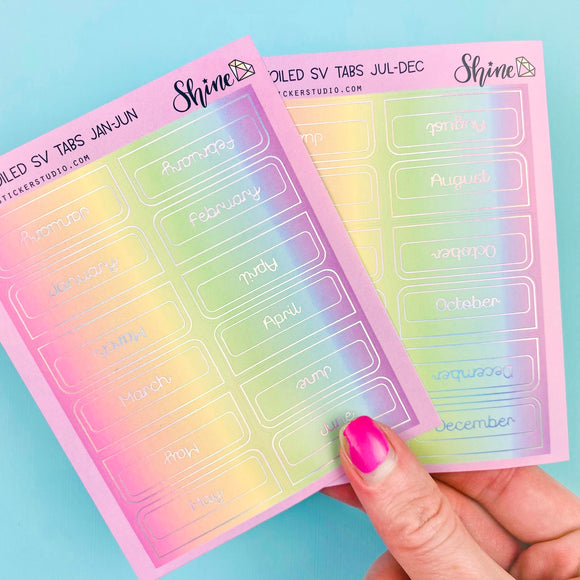 OILED SV TABS JAN-JUN
STICKERSTUDIO.COM
Shine
January
February
January
February
March
April
March
April
May
June
May
June
OILED SV TABS JUL-DEC
STICKERSTUDIO.COM
Shine
August
August
October
October
December
December